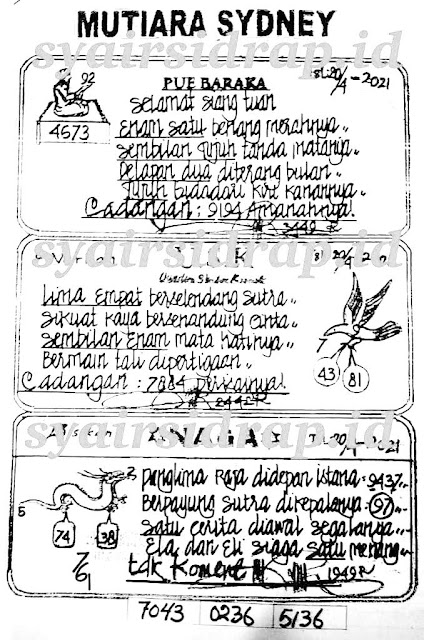 MUTIARA SYDNEY
syairsidrap.id
92
4673
PUE BARAKA
20/4-2021
Selamat siang tuan
Enam satu benang merahnya..
Sembilan Tujuh tanda matanya
Delapan dua diterang bulan
Tujuh bidadari kiri kanannya..
Cadangan: 9194 Amanahnya!
syairsidrap.id
Lima Empat berselendang sutra..
Sikuat kaya bersenandung cinta
Sembilan Enam mata hatinya..
Bermain tali dipertigaan..
Cadangan: 7884
7
43
81
syairsidrap.id
NAGA
20/4-2021
Panglima Raja didepan istana: 9437..
Berpayung sutra dikepalanya 97..
Satu cerita diawal segalanya..
Ela dan Eli siaga satu menang..
tak Koment
1949R
5
2
74
38
7/61
7043
0236
5136